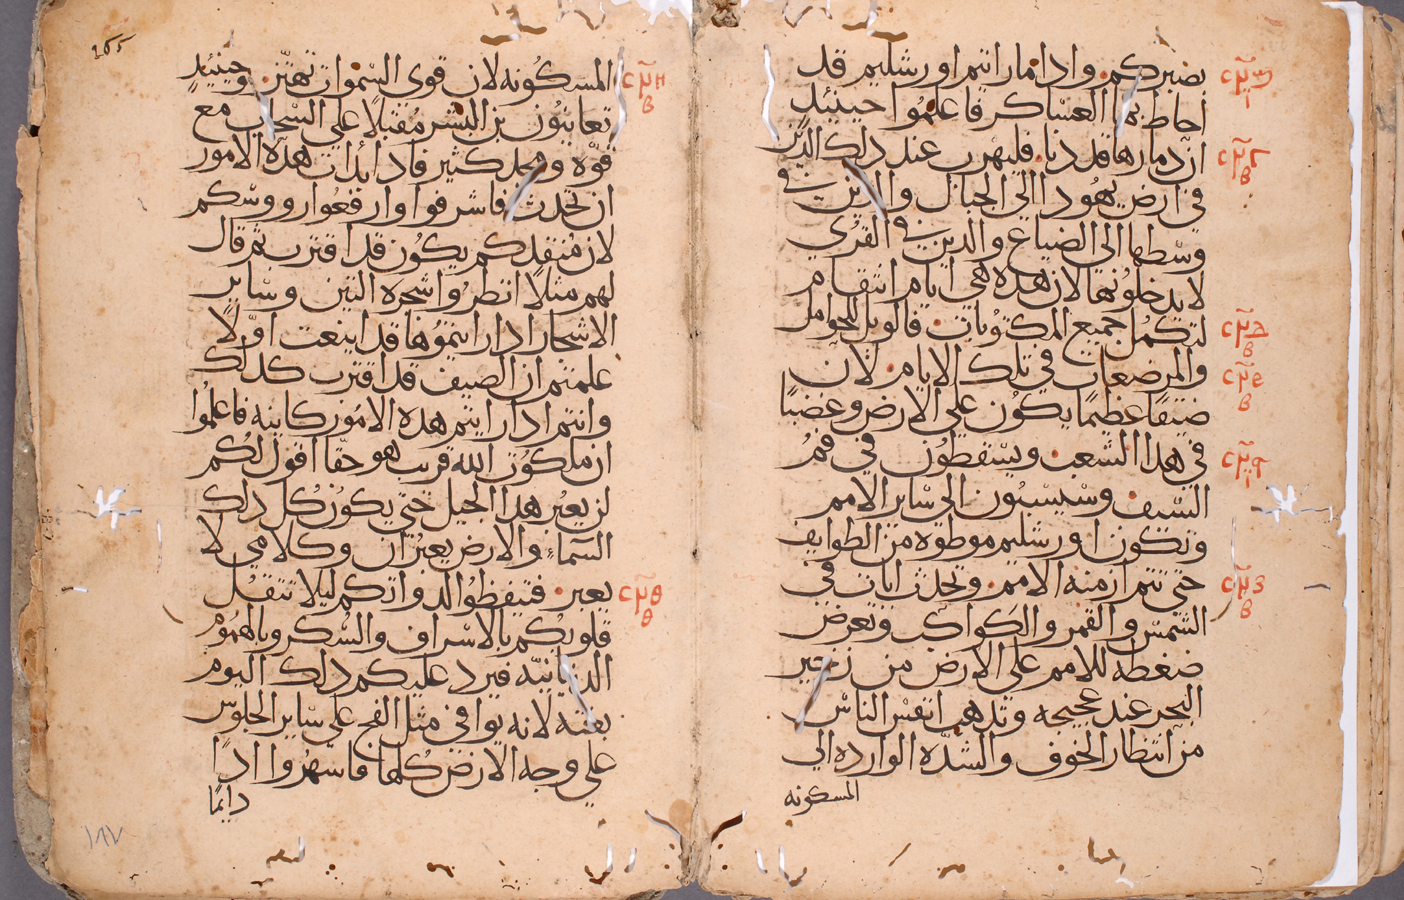 بصبركم. وادا مارايتم اورشليم قد
احاط بها العساكر فاعلموا حينيدٍ
ان دمارها قد دنا. فليهرب عند دلك الدين
في ارض يهودا الي الجبال والدين في
وسطها الي الضياع والدين في القري
لا يدخلونها لان هده هي ايام انتقام
لتكمل جميع المكتوبات. فالويل للحوامل
والمرضعات في تلك الايام. لان
ضيقًا عظيمًا يكون علي الارض وغضبًا
في هدا الشعب. ويسقطون في فم
السيف. وسيسبون الي ساير الامم
وتكون اورشليم موطوه من الطوايف
حتي تتم ازمنه الامم. وتحدث ايات في
الشمس والقمر والكواكب وتعرض
ضغطه للامم علي الارض من زجير
البحر عند عجيجه وتدهب انفس الناس
من انتظار الخوف والشده الوارده الي
المسكونه
ⲥⲙ̅ⲏ
ⲃ
ⲥⲙ̅ⲑ
ⲑ
المسكونه لان قوي السموات تهتز. وحينيدٍ
تعاينون بن البشر مقبلًا علي السحاب مع
قوه ومجد كثير فادا بدات هده الامور
ان تحدث فاشرفوا وارفعوا رووسكم
لان منقدكم يكون قد اقترب ثم قال
لهم مثلًا انظروا شجره التين وساير
الاشجار ادا رايتموها قد اينعت اولًا
علمتم ان الصيف قد اقترب كدلك
وانتم ادا رايتم هده الامور كاينه فاعلموا
ان ملكوت الله قريب هو حقًا اقول لكم
لن يعبر هدا الجيل حتي يكون كل دلك
السماء والارض يعبران وكلامي لا
يعبر. فتيقظوا لدواتكم ليلا تتقل
قلوبكم بالاسراف والسكر وبالهموم
الدنيانيه فيرد عليكم دلك اليوم
بغته لانه يوافي مثل الفخ علي ساير الجلوس
علي وجه الارض كلها فاسهروا ادًا
دايمًا
١٨٧